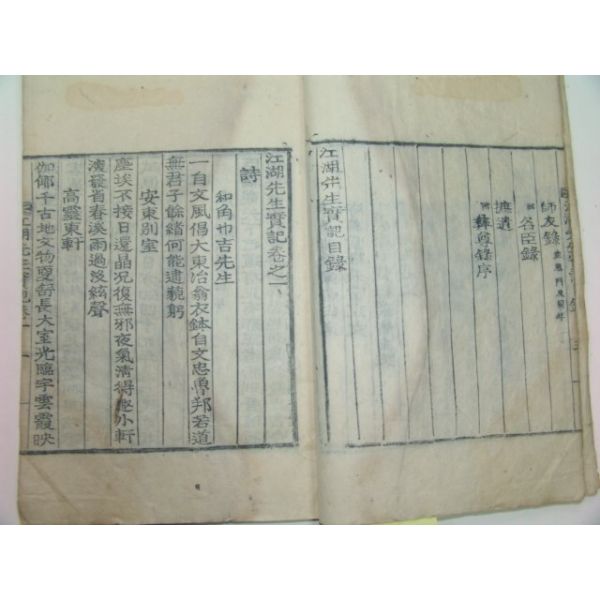 師友錄
名臣錄
摭遺
彝尊錄序
江湖先生實記目錄
江湖先生實記卷之一
詩
和角巾吉先生
一自文風倡大東冶翁衣鉢自文忠魯邦若道
無君子餘緒何能逮藐躬
安東別室
塵埃不接日還晶况復無邪夜氣淸得
小軒
滚發首春溪雨過沒絃聲
高靈東軒
伽倻千古地文物
長大室光臨宇雲霞映